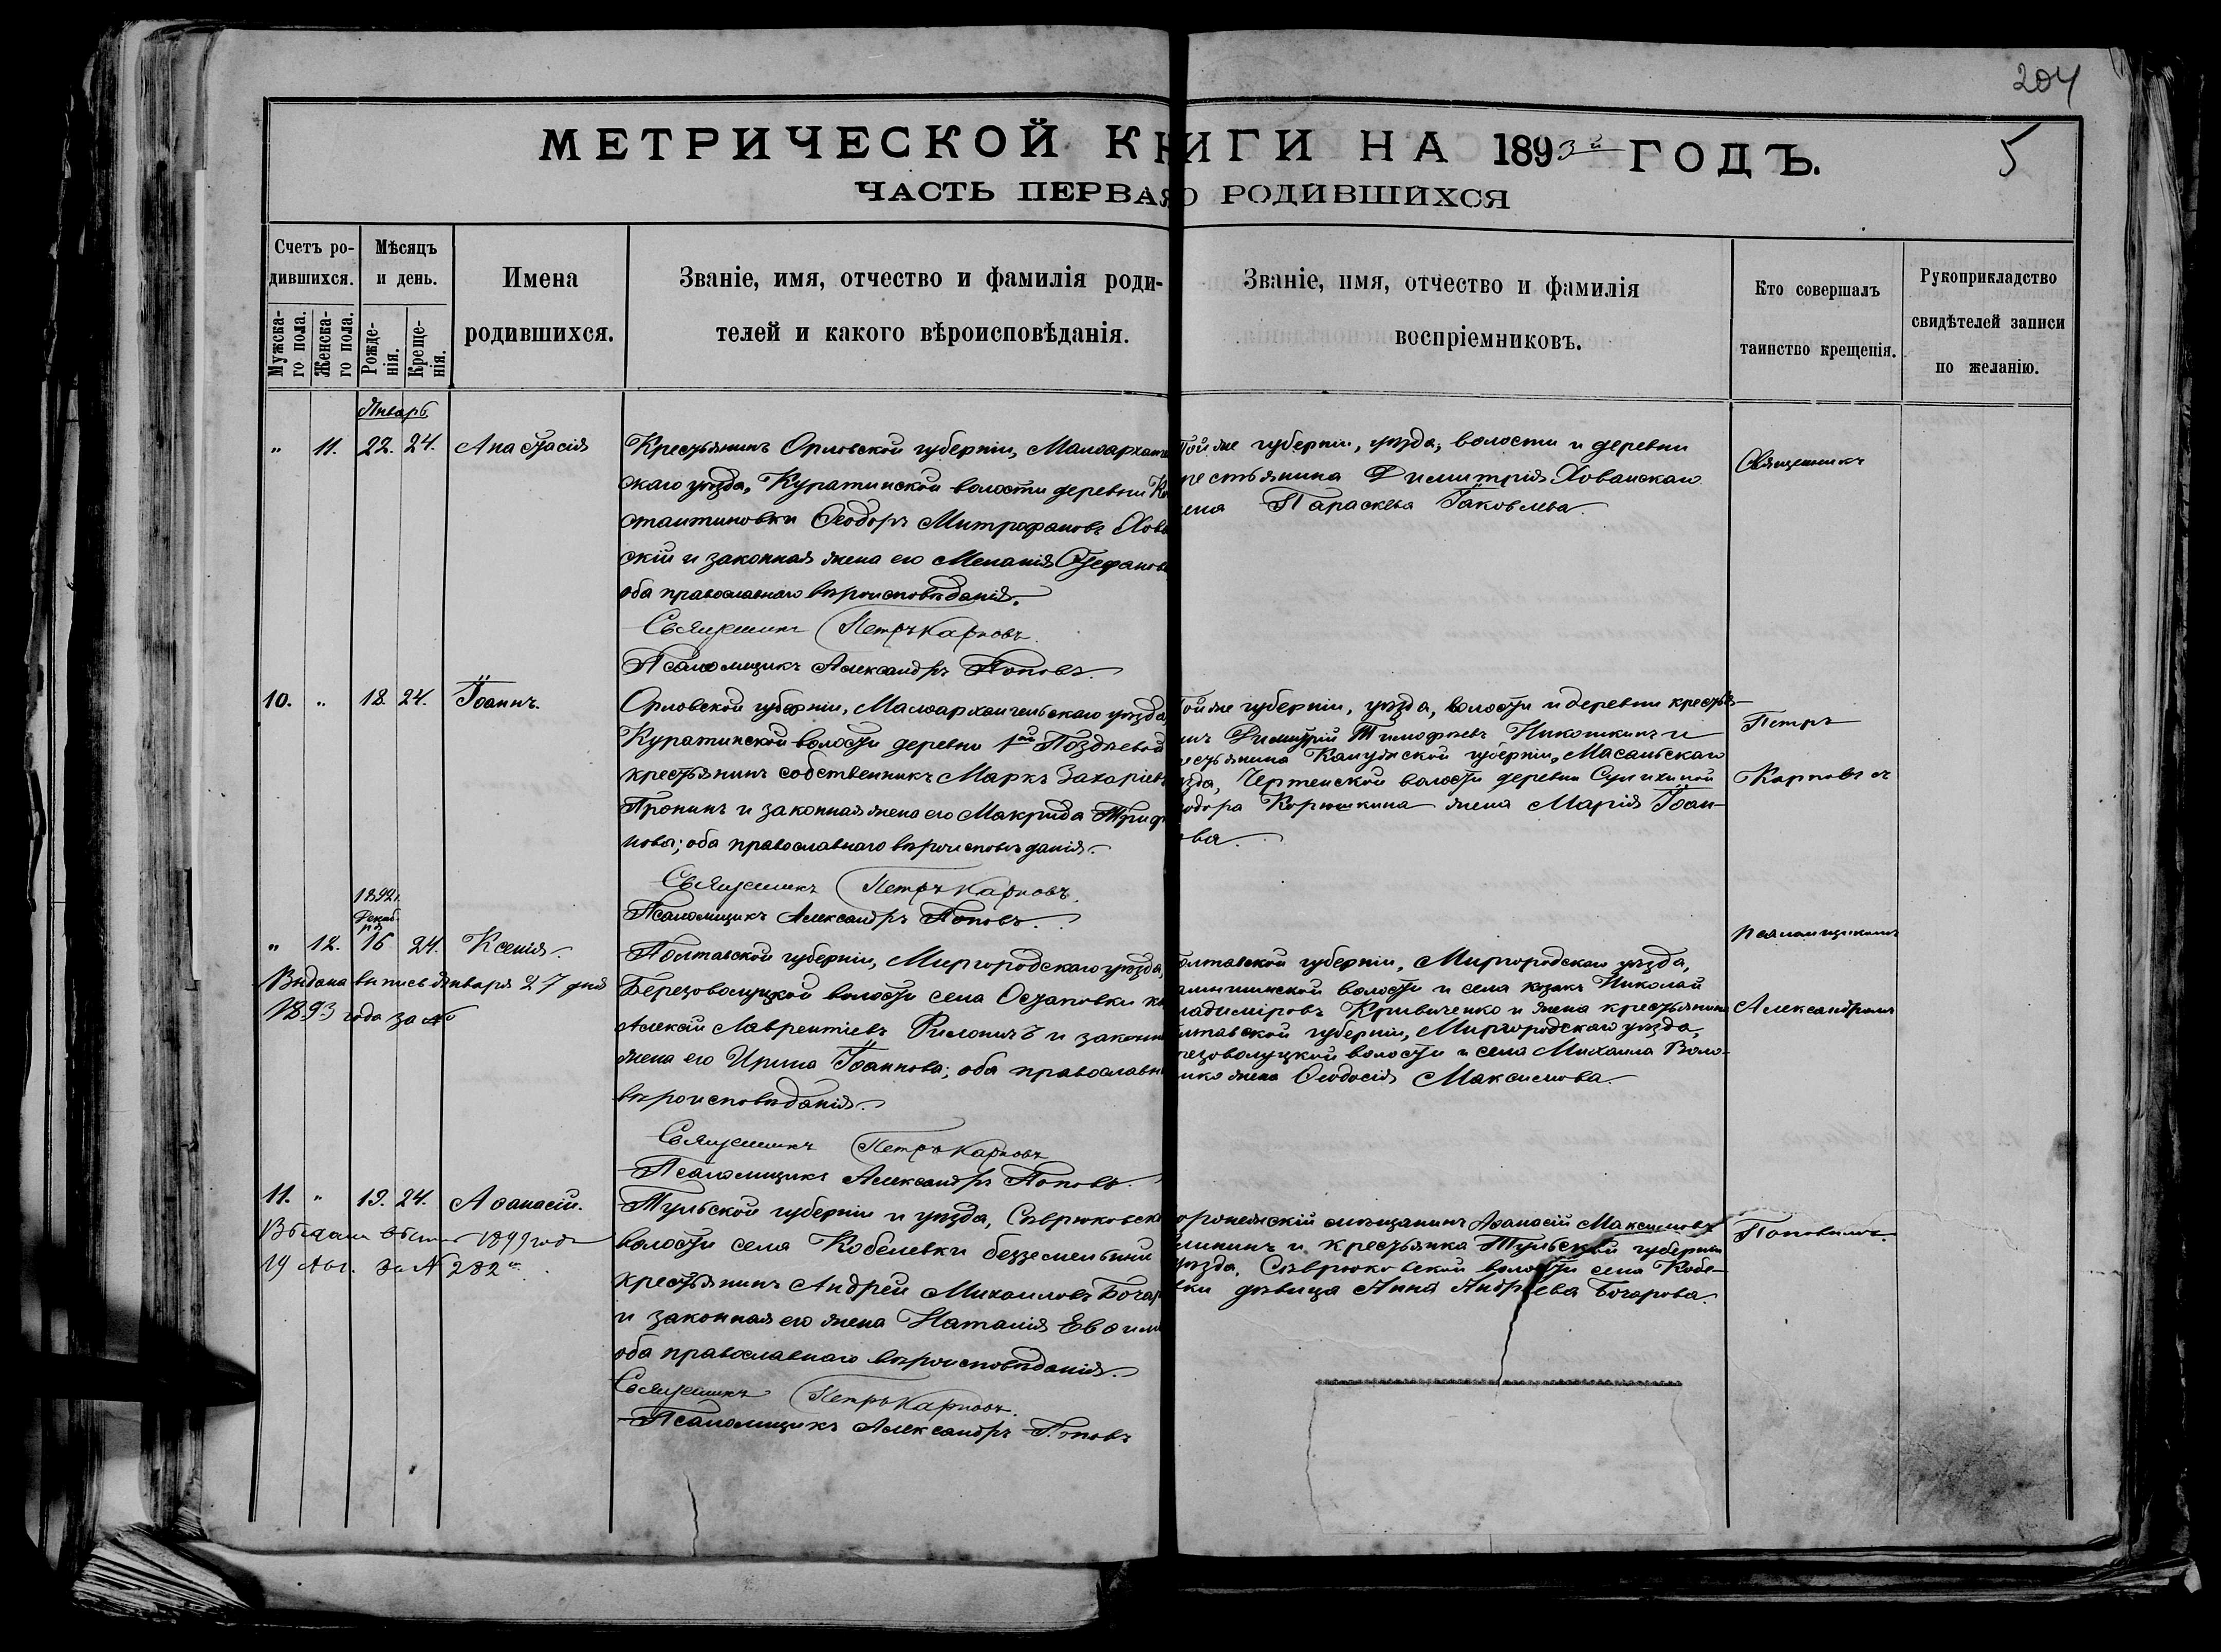 204
МЕТРИЧЕСКОЙ КНИГИ НА 1893й ГОДЪ.
5
ЧАСТЬ ПЕРВАЯ О РОДИВШИХСЯ
Счетъ ро-
дившихся.
Мужска-
го пола.
Женска-
го пола.
Мѣсяцъ
и день.
Рожде-
нія.
Креще-
нія.
Имена
родившихся.
Званіе, имя, отчество и фамилія роди-
телей и какого вѣроисповѣданія.
Званіе, имя, отчество и фамилія
воспріемниковъ.
Кто совершалъ
таинство крещенія.
Рукоприкладство
свидѣтелей записи
по желанію.
Январь
" 11. 22. 24. Анастасія
Крестьянинъ Орловской губерніи, Малоарханге
скаго уѣзда, Куратинской волости деревни Ко
стантиновки Ѳеодоръ Митрофановъ Хова
скій и законная жена его Меланія Стефанов
оба православнаго вѣроисповѣданія.
Священникъ Петръ Карповъ
Псаломщикъ Александръ Поповъ.
Той же губерніи, уѣзда, волости и деревни
рестьянина Димитрія Хованскаго
ена Параскева Іаковлева
Священникъ
10. " 18. 24. Іоаннъ.
Орловской губерніи, Малоархангельскаго уѣзда,
Куратинской волости деревни 1й Поздневой
крестьянинъ собственникъ Маркъ Захаріевъ
Пронинъ и законная жена его Макрида Триф
нова; оба православнаго вѣроисповѣданія.
Священникъ Петръ Карповъ
Псаломщикъ Александръ Поповъ.
ой же губерніи, уѣзда, волости и деревни крестья-
инъ Димитрій Тимофѣевъ Никошкинъ и
естьянина Калужской губерніи, Масальскаго
ѣзда, Чертенской волости деревни Сулихиной
одора Корюшкина жена Марія Іоан-
ова.
Петръ
Карповъ съ
1892 г.
Декаб
ря
" 12. 16 24. Ксенія.
Выдана выпись января 27 дня
1893 года за №
Полтавской губерніи, Миргородскаго уѣзда,
Березоволуцкой волости села Остаповки ко
Алексій Лаврентіевъ Филоничъ и законна
жена его Ирина Іоаннова; оба православна
вѣроисповѣданія.
Священникъ Петръ Карповъ
Псаломщикъ Александръ Поповъ.
олтавской губерніи, Миргородскаго уѣзда,
волости и села козакъ Николай
ладиміровъ Кривиченко и жена крестьянина
лтавской губерніи, Миргородскаго уѣзда,
резоволуцкой волости и села Михаила Воло-
нко жена Ѳеодосія Максимова.
псаломщикомъ
Александромъ
11. " 19. 24. Аѳанасій.
Выдана выпись 1899 года
19 Авг. за № 282
Тульской губерніи и уѣзда, Севрюковск
волости села Кобелевки безземельный
крестьянинъ Андрей Михаиловъ Бочар
и законная его жена Наталія Евѳими
оба православнаго вѣроисповѣданія.
Священникъ Петръ Карповъ.
Псаломщикъ Александръ Поповъ
оронежскій мѣщанинъ Аѳанасій Максимовъ
и крестьянка Тульской губерніи
уѣзда, Севрюковской волости села Кобе-
вки дѣвица Анна Андреева Бочарова.
Поповымъ.